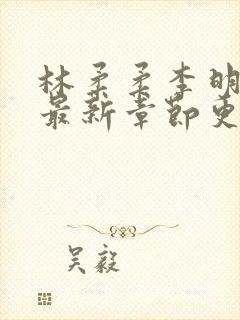 林柔柔李明
最新章节更
吴毅